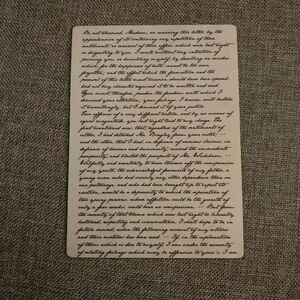 Be not alarmed, Madam, on receiving this letter, by the
apprehension of its containing any repetition of those
sentiments, or renewal of those offers which were last night
so disgusting to you. I write without any intention of
paining you, or humbling myself, by dwelling on wishes
which, for the happiness of both, cannot be too soon
forgotten; and the effort which the formation and the
perusal of this letter must occasion should have been spared,
had not my character required it to be written and read.
You must, therefore, pardon the freedom with which I
demand your attention; your feelings, I know, will bestow
it unwillingly, but I demand it of your justice.
Two offences of a very different nature, and by no means of
equal magnitude, you last night laid to my charge. The
first mentioned was, that, regardless of the sentiments of
either, I had detached Mr. Bingley from your sister, --
and the other, that I had, in defiance of various claims, in
defiance of honour and humanity, ruined the immediate
prosperity, and blasted the prospects of Mr. Wickham. --
Wilfully and wantonly to have thrown off the companion of
my youth, the acknowledged favourite of my father, a
young man who had scarcely any other dependence than on
our patronage, and who had been brought up to expect its
exertion, would be a depravity to which the separation of
two young persons, whose affection could be the growth of
only a few weeks, could bear no comparison. -- But from
the severity of that blame which was last night so liberally
bestowed, respecting each circumstance, I shall hope to be in
future secured, when the following account of my actions
and their motives has been read. -- If, in the explanation
of them which is due to myself, I am under the necessity of
relating feelings which may be offensive to yours, I can